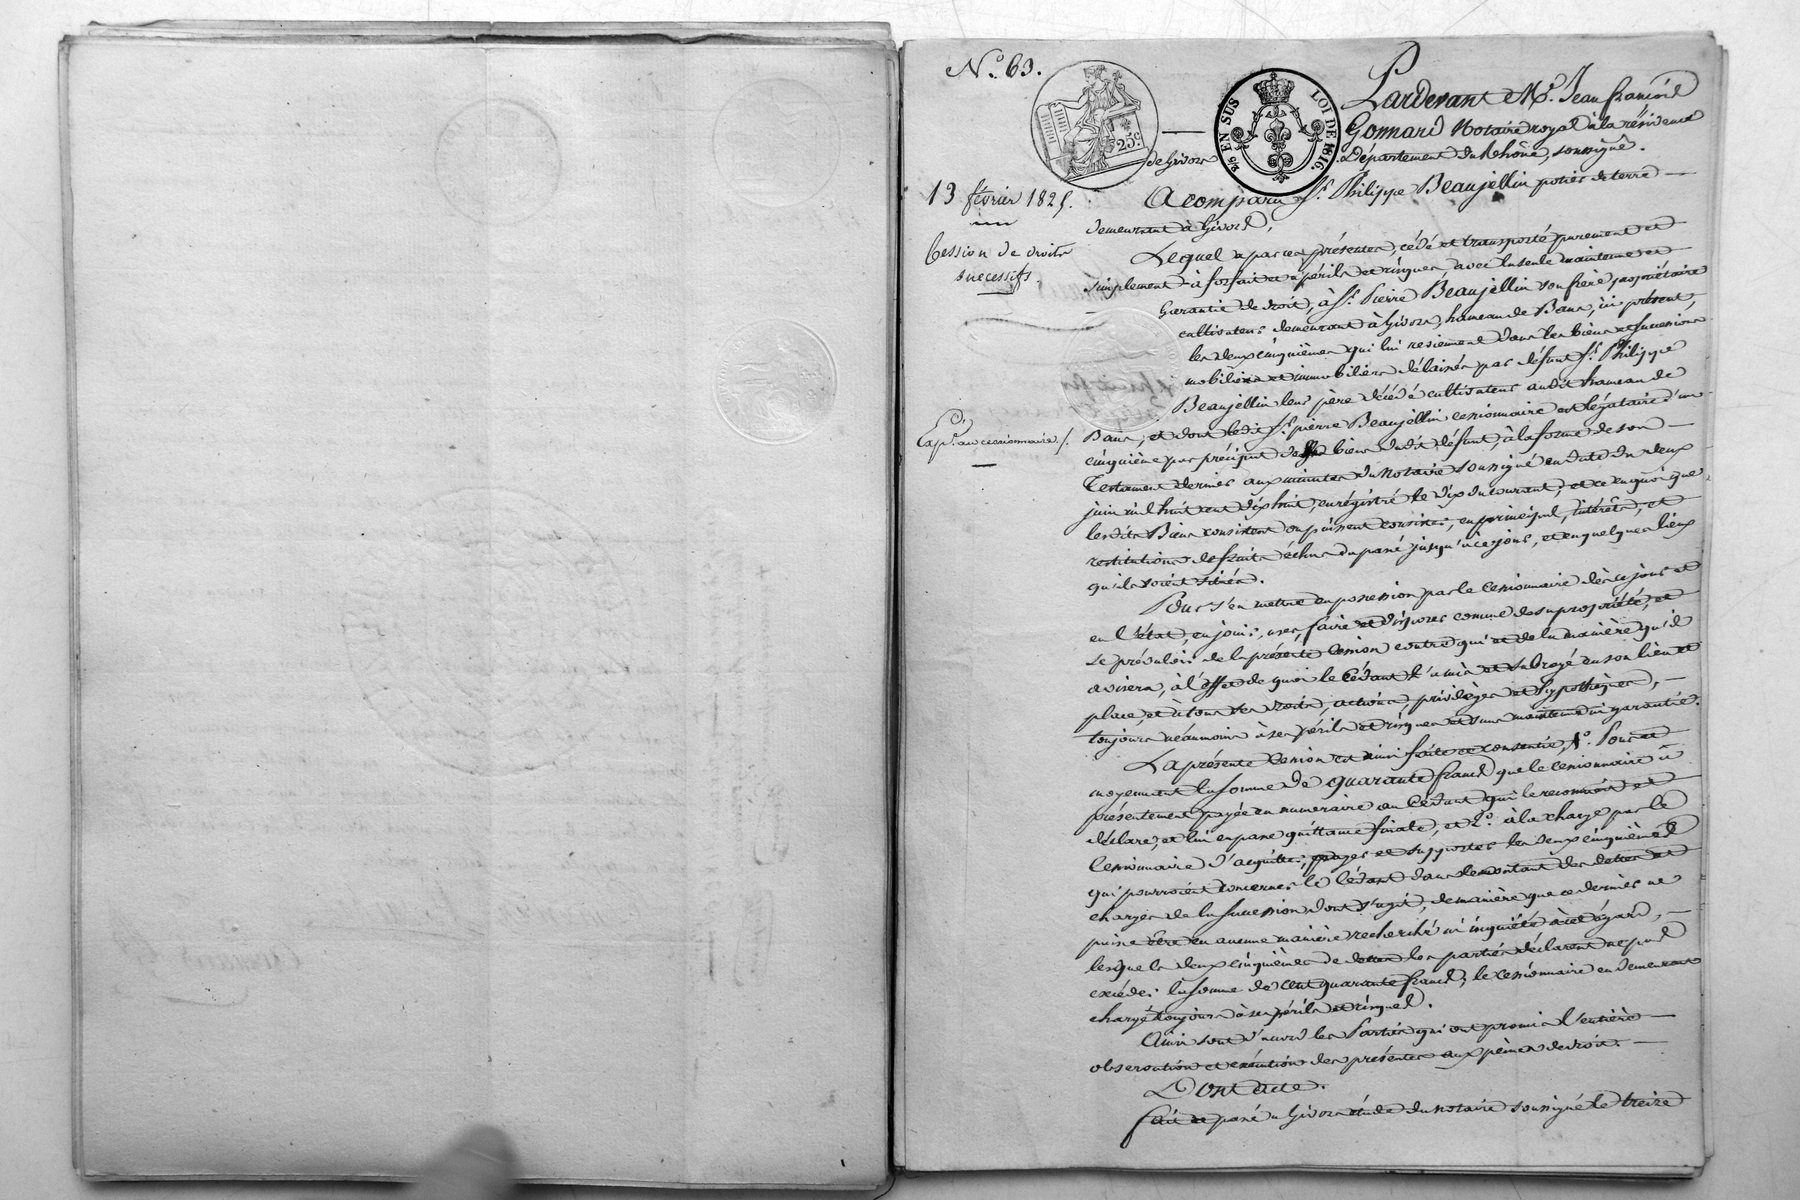 N.° 63.
25.c
2/5 EN SUS
LOI DE 1816.
Pardevant M.e Jean françois
Gonnard Notaire royal à la résidence
de Givors Département du Rhône, soussigné.
13 février 1825.
A comparu S.r Philippe Beaujellin potier de terre
demeurant à Givors,
Cession de droits
successifs.
Lequel a par ces présentes, cédé et transporté purement et
simplement à forfait et à périls et risques, avec la seule maintenue et
Garantie de droit, à S.r Pierre Beaujellin son frère propriétaire
cultivateur demeurant à Givors, hameau de Bans, ici présent,
les deux cinquièmes qui lui reviennent dans les biens et successions
mobiliers et immobiliers délaissés par défunt S.r Philippe
Beaujellin leur père décédé cultivateur audit hameau de
Exp.on au cessionnaire /.
Bans, et dont ledit S.r pierre Beaujellin cessionnaire est légataire d'un
cinquième par préciput des biens dudit défunt, à la forme de son
Testament dernier aux minutes du Notaire soussigné en date du deux
juin mil huit cent dix huit, enregistré le dix du courant, et ce en quoi que
lesdits Biens consistent ou puissent consister, en principal, intérêts, et
restitutions de fruits échus du passé jusqu'à ce jour, et en quelques lieux
qu'ils soient situés.
Pour s'en mettre en possession par le Cessionnaire dès ce jour et
en l'état, en jouir, user, faire et disposer comme de sa propriété, et
se prévaloir de la présente Cession contre qui et de la manière qu'il
avisera, à l'effet de quoi le Cédant l'a mis et subrogé en son lieu et
place, et à tous ses droits, actions, privilèges et hypothèques,
toujours néanmoins à ses périls et risques et sans maintenue ni garantie.
La présente Cession est ainsi faite et consentie, 1.° Pour et
moyennant la somme de quarante francs que le cessionnaire a
présentement payée en numéraire au Cédant qui le reconnoit et
déclare, et lui en passe quittance finale, et 2.° à la charge par le
Cessionnaire d'acquitter, payer et supporter les deux cinquièmes
qui pourroient concerner le Cédant dans le montant des dettes et
charges de la succession dont s'agit, de manière que ce dernier ne
puisse être en aucune manière recherché ni inquiété à cet égard,
lesquels deux cinquièmes de dettes les parties déclarent ne pas
excéder la somme de Cent quarante francs, le cessionnaire en demeurant
chargé toujours à ses périls et risques.
Ainsi sont d'accord les Parties qui ont promis l'entière
observation et exécution des présentes aux peines de droit.
Dont acte.
fait et passé à Givors étude du notaire soussigné le treize